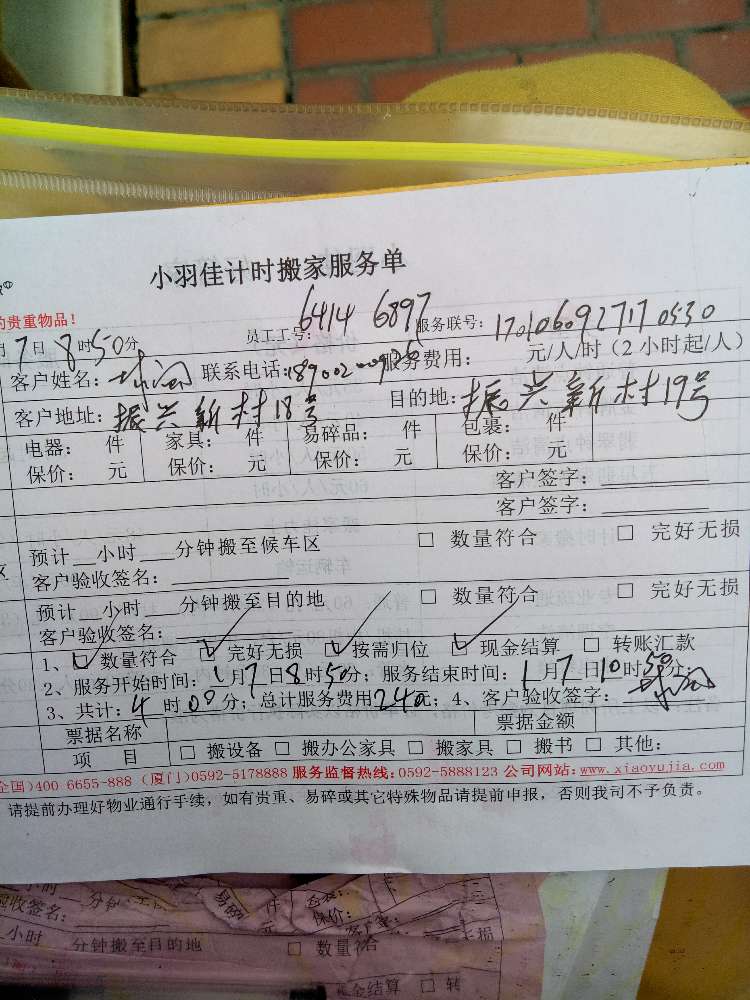 小羽佳计时搬家服务单
的贵重物品！
月7日8时50分 员工工号：6414 6897 服务联号：17010609271710530
客户姓名： 联系电话： 服务费用： 元/人/时（2小时起/人）
客户地址：振兴新村18号 目的地：振兴新村19号
电器： 件 家具： 件 易碎品： 件 包裹： 件
保价： 元 保价： 元 保价： 元 保价： 元
客户签字：
客户签字：
预计__小时___分钟搬至候车区 □ 数量符合 □ 完好无损
客户验收签名：
预计__小时___分钟搬至目的地 □ 数量符合 □ 完好无损
客户验收签名：
1、☑ 数量符合 ☑ 完好无损 ☑ 按需归位 ☑ 现金结算 □ 转账汇款
2、服务开始时间：1月7日8时50分；服务结束时间：1月7日10时50分；
3、共计：4时00分；总计服务费用240元；4、客户验收签字：
票据名称 票据金额
项 目 □ 搬设备 □ 搬办公家具 □ 搬家具 □ 搬书 □ 其他：
全国)400 6655-888 (厦门)0592-5178888 服务监督热线:0592-5888123 公司网站:www.xiaoyujia.com
请提前办理好物业通行手续，如有贵重、易碎或其它特殊物品请提前申报，否则我司不予负责。
小时 分钟 易碎 件
验收签名： 保价：
小时 分钟搬至目的地 □ 数量符合
现金结算 □ 转